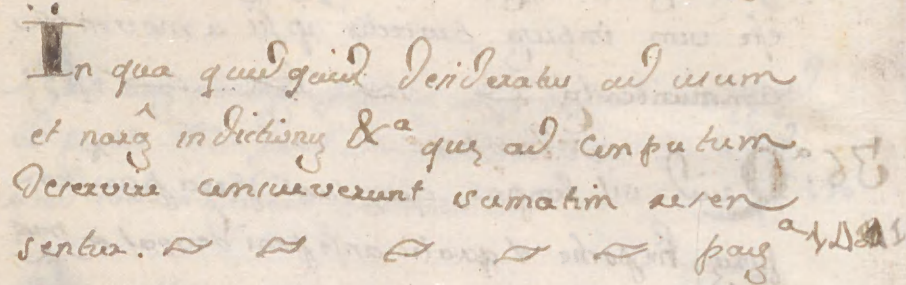 In qua quid quid desideratur ad usum
et indictionis &a que ad computum
deservire consueverunt sumatim resen
sentur. pag